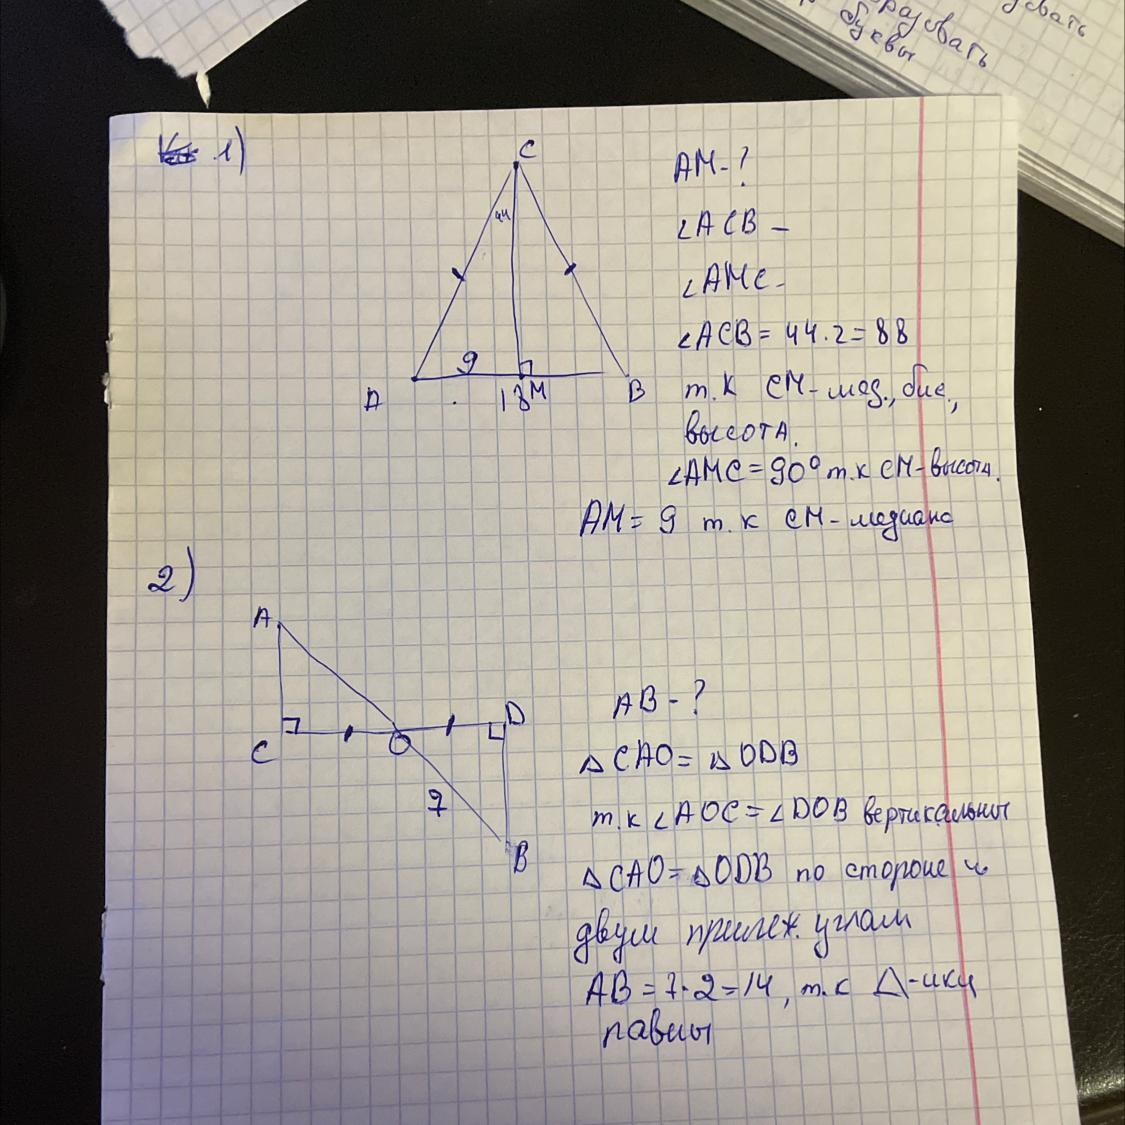 довать
разовать
буквы
1)
C
AM-?
44
∠ACB -
∠AMC-
∠ACB = 44·2=88
9
A
18
M
B
т.к CM-мед., бис.,
высота.
∠AMC=90° т.к CM-высота.
AM= 9 т.к CM-медиана
2)
A
AB-?
D
C
O
△CAO= △ODB
7
т.к ∠AOC=∠DOB вертикальные
B
△CAO=△ODB по стороне и
двум прилеж. углам
AB=7·2=14, т.к △-ики
равны